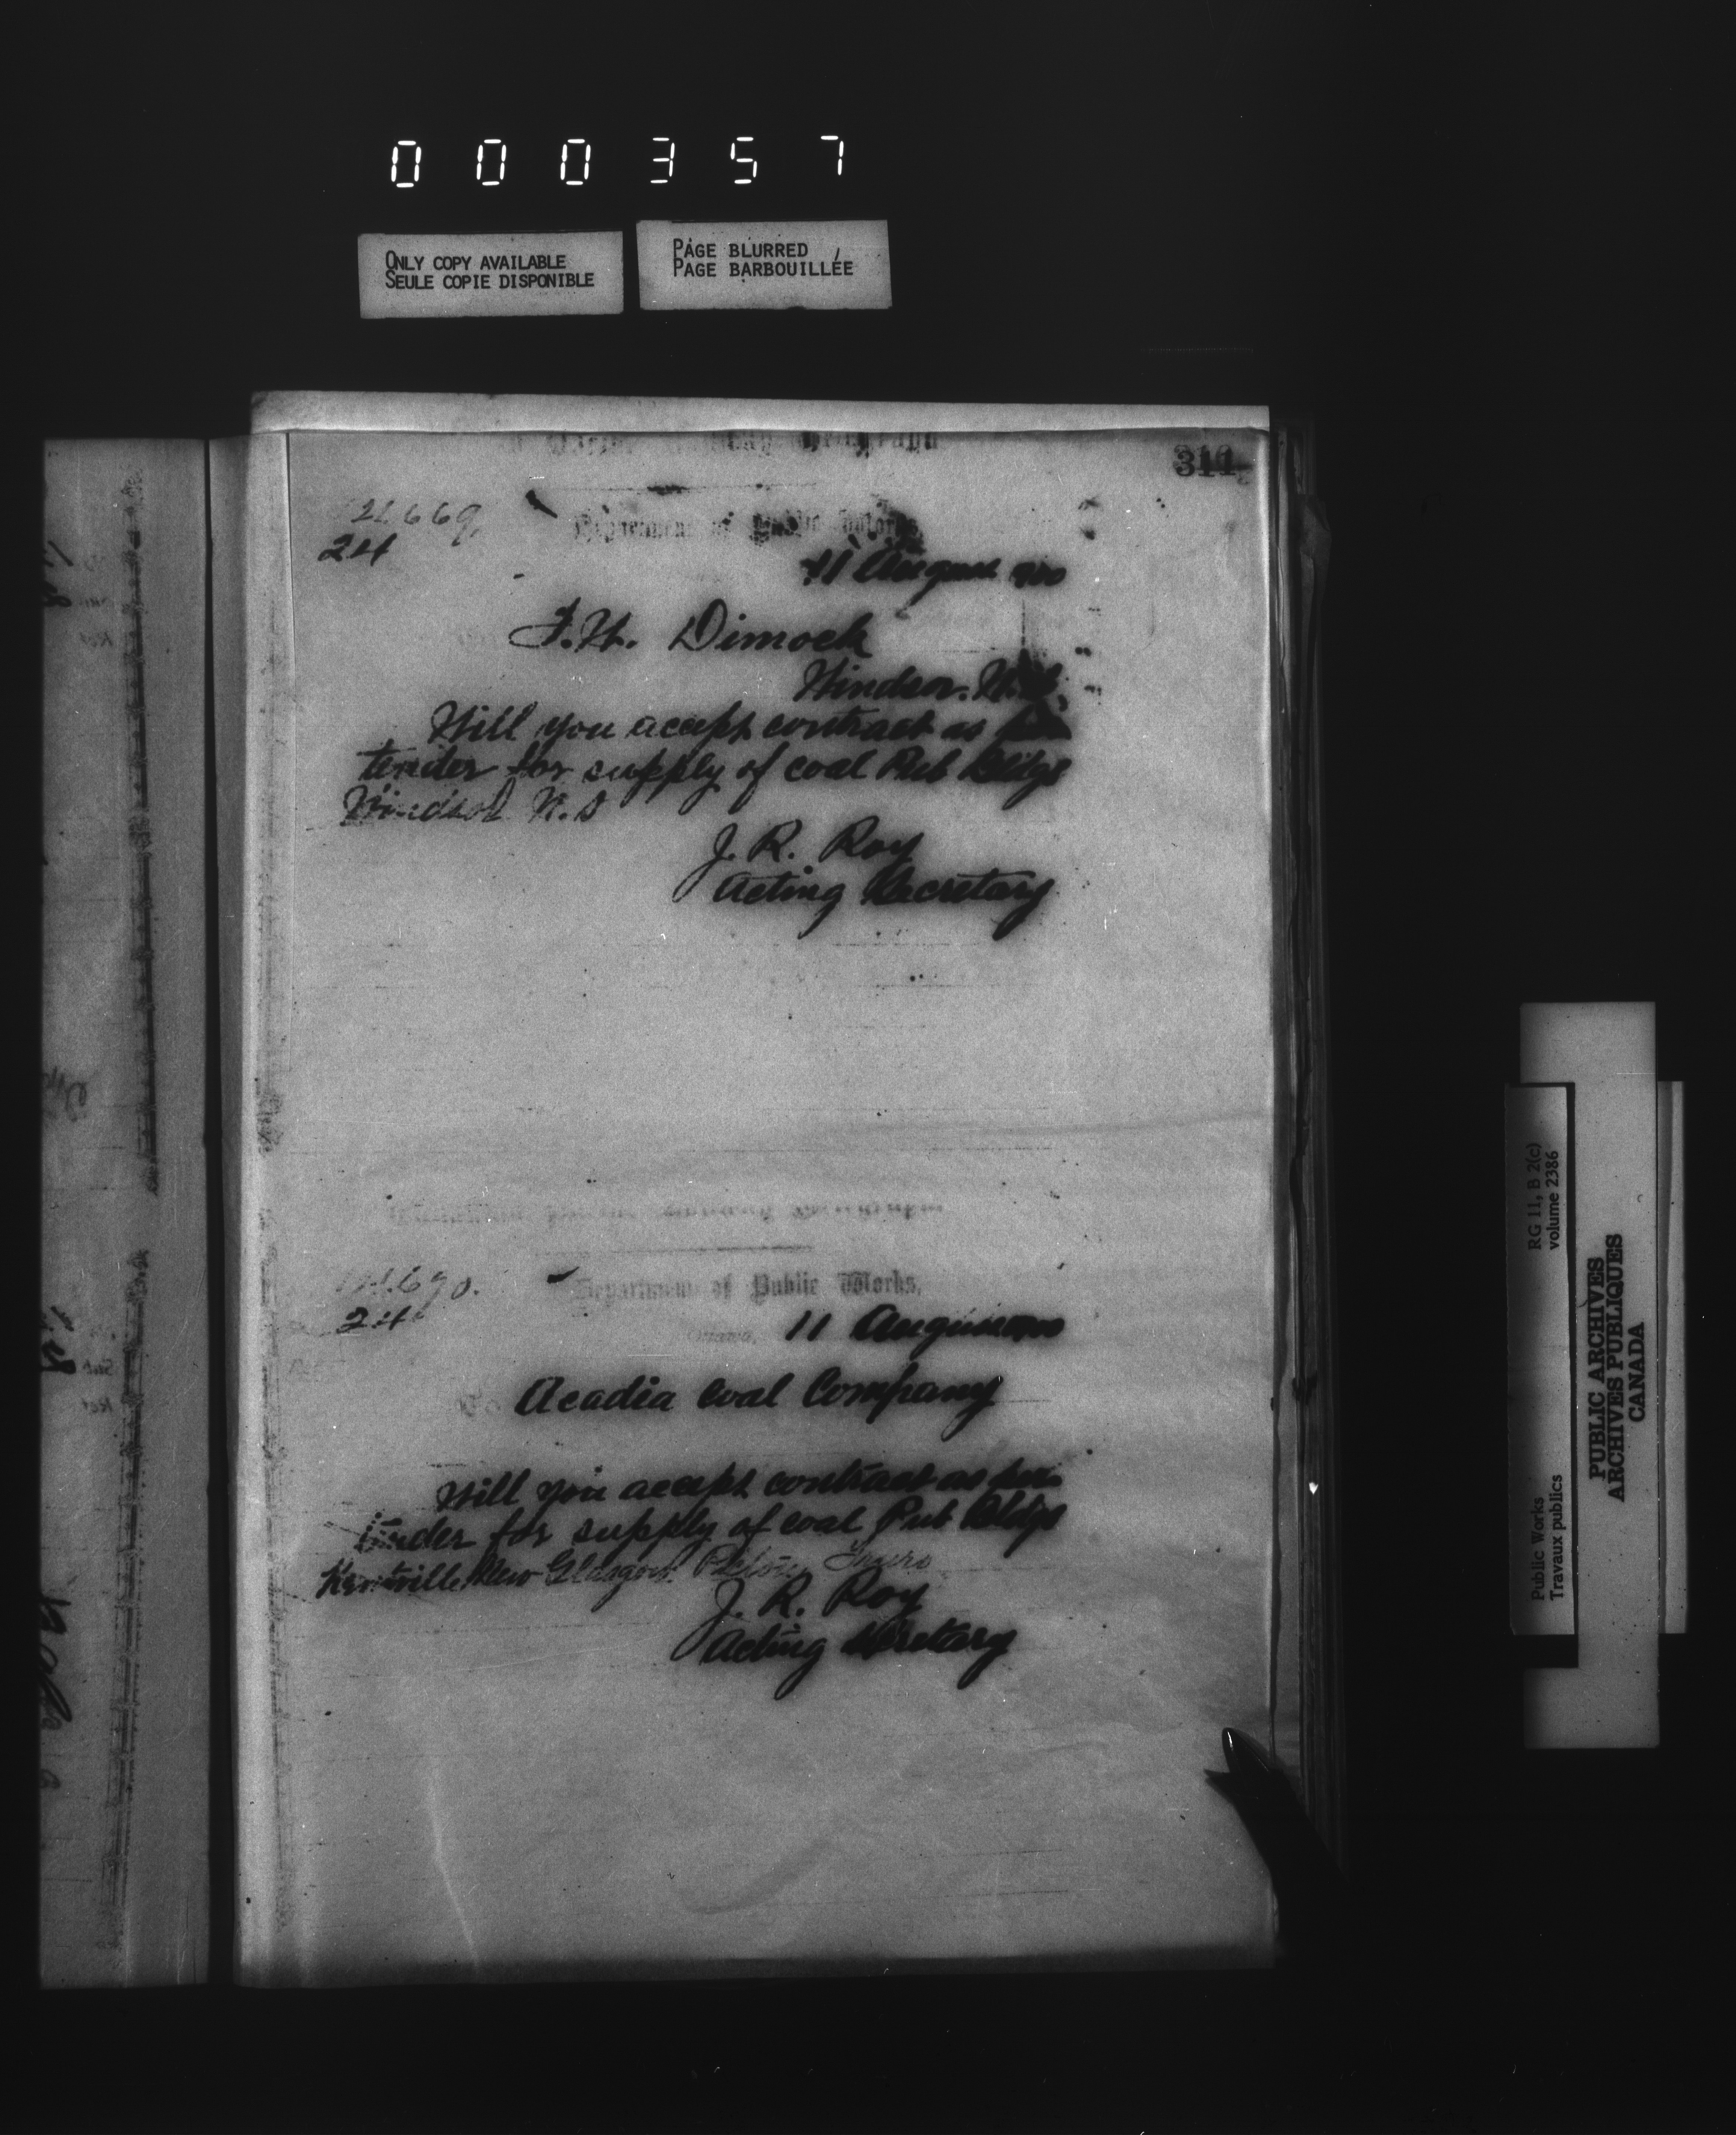 000357
ONLY COPY AVAILABLE
SEULE COPIE DISPONIBLE
PAGE BLURRED
PAGE BARBOUILLÉE
311
24
Department of Public Works,
11 August
F.H. Dimock
Windsor. N.S.
Will you accept contract as per
tender for supply of coal Pub Bldgs
Windsor N.S
J. R. Roy
Acting Secretary
Department of Public Works,
24
Ottawa, 11 August
Acadia Coal Company
Will you accept contract as per
tender for supply of coal Pub Bldgs
Kentville New Glasgow Pictou Truro
J. R. Roy
Acting Secretary
RG 11, B 2(c)
volume 2386
Public Works
Travaux publics
PUBLIC ARCHIVES
ARCHIVES PUBLIQUES
CANADA